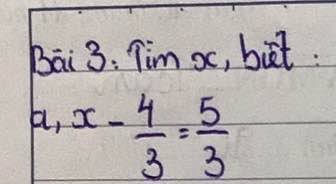 Bài 3: Tìm x, biết :
a, x - 4/3 = 5/3